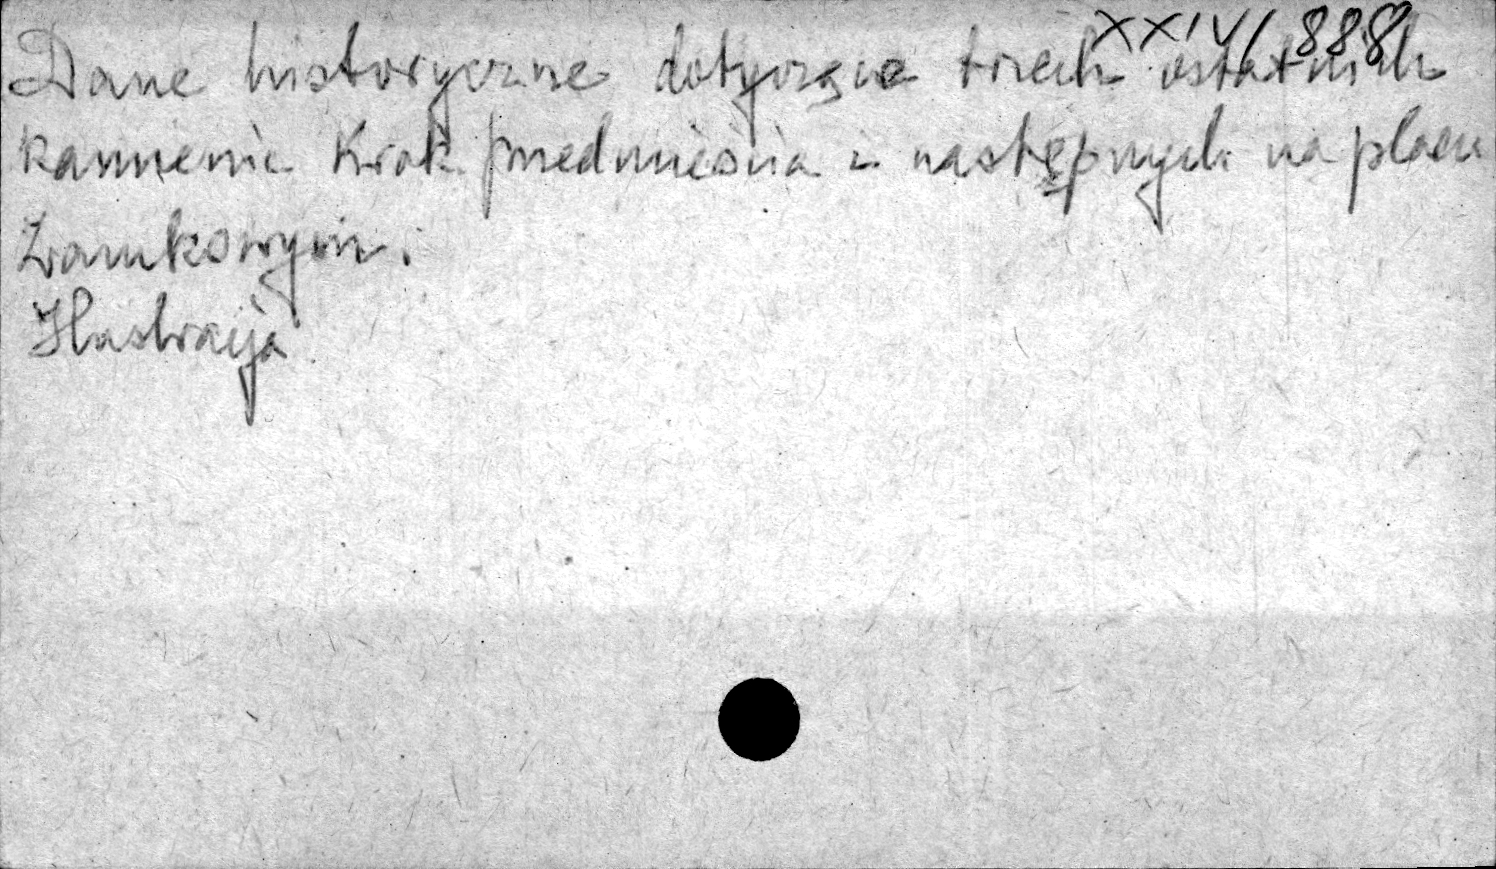 XXIV/888
Dane historyczne dotyczące trzech ostatnich
kamienic Krak. przedmieścia i następnych na placu
Zamkowym.
Ilustracja